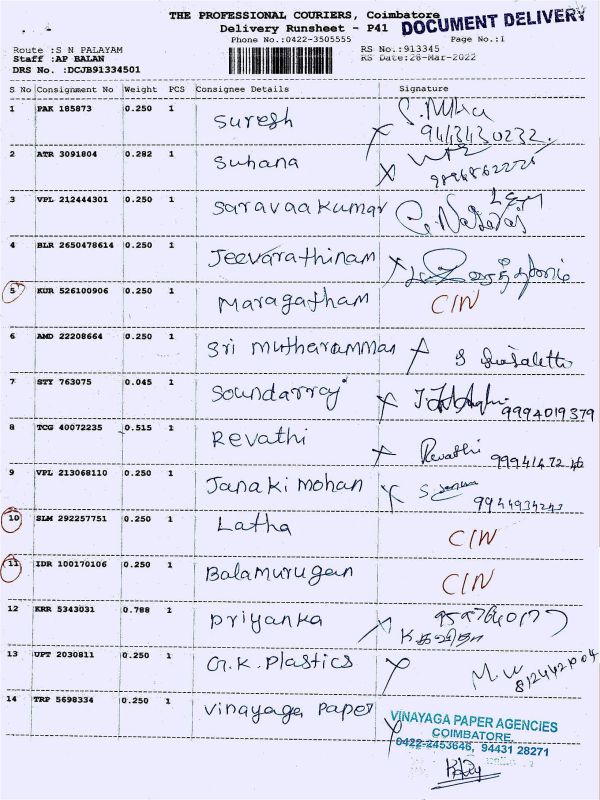 THE PROFESSIONAL COURIERS, Coimbatore
DOCUMENT DELIVERY
Delivery Runsheet - P41
Phone No.:0422-3505555 Page No.:1
Route :S N PALAYAM RS No.:913345
Staff :AP BALAN RS Date:26-Mar-2022
DRS No. :DCJB91334501
S No Consignment No Weight PCS Consignee Details Signature
1 PAK 185873 0.250 1 Suresh
9443430232.
2 ATR 3091804 0.282 1 Suhana
3 VPL 212444301 0.250 1 Saravaakumar
4 BLR 2650478614 0.250 1 Jeevarathinam
5 KUR 526100906 0.250 1 Maragatham CIN
6 AMD 22208664 0.250 1 Sri Mutharamman
7 STY 763075 0.045 1 Soundarraj 9994019379
8 TCG 40072235 0.515 1 Revathi Revathi
9 VPL 213068110 0.250 1 Janaki Mohan
10 SLM 292257751 0.250 1 Latha CIN
11 IDR 100170106 0.250 1 Balamurugan CIN
12 KRR 5343031 0.788 1 Priyanka
13 UPT 2030811 0.250 1 G.K. Plastics
14 TRP 5698334 0.250 1 Vinayaga Paper
VINAYAGA PAPER AGENCIES
COIMBATORE.
0422-2453646, 94431 28271